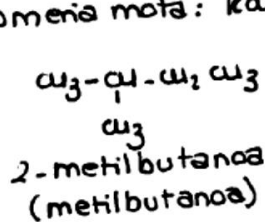 omeria mota: Ka
CH3-CH-CH2 CH3
CH3
2-metilbutanoa
(metilbutanoa)